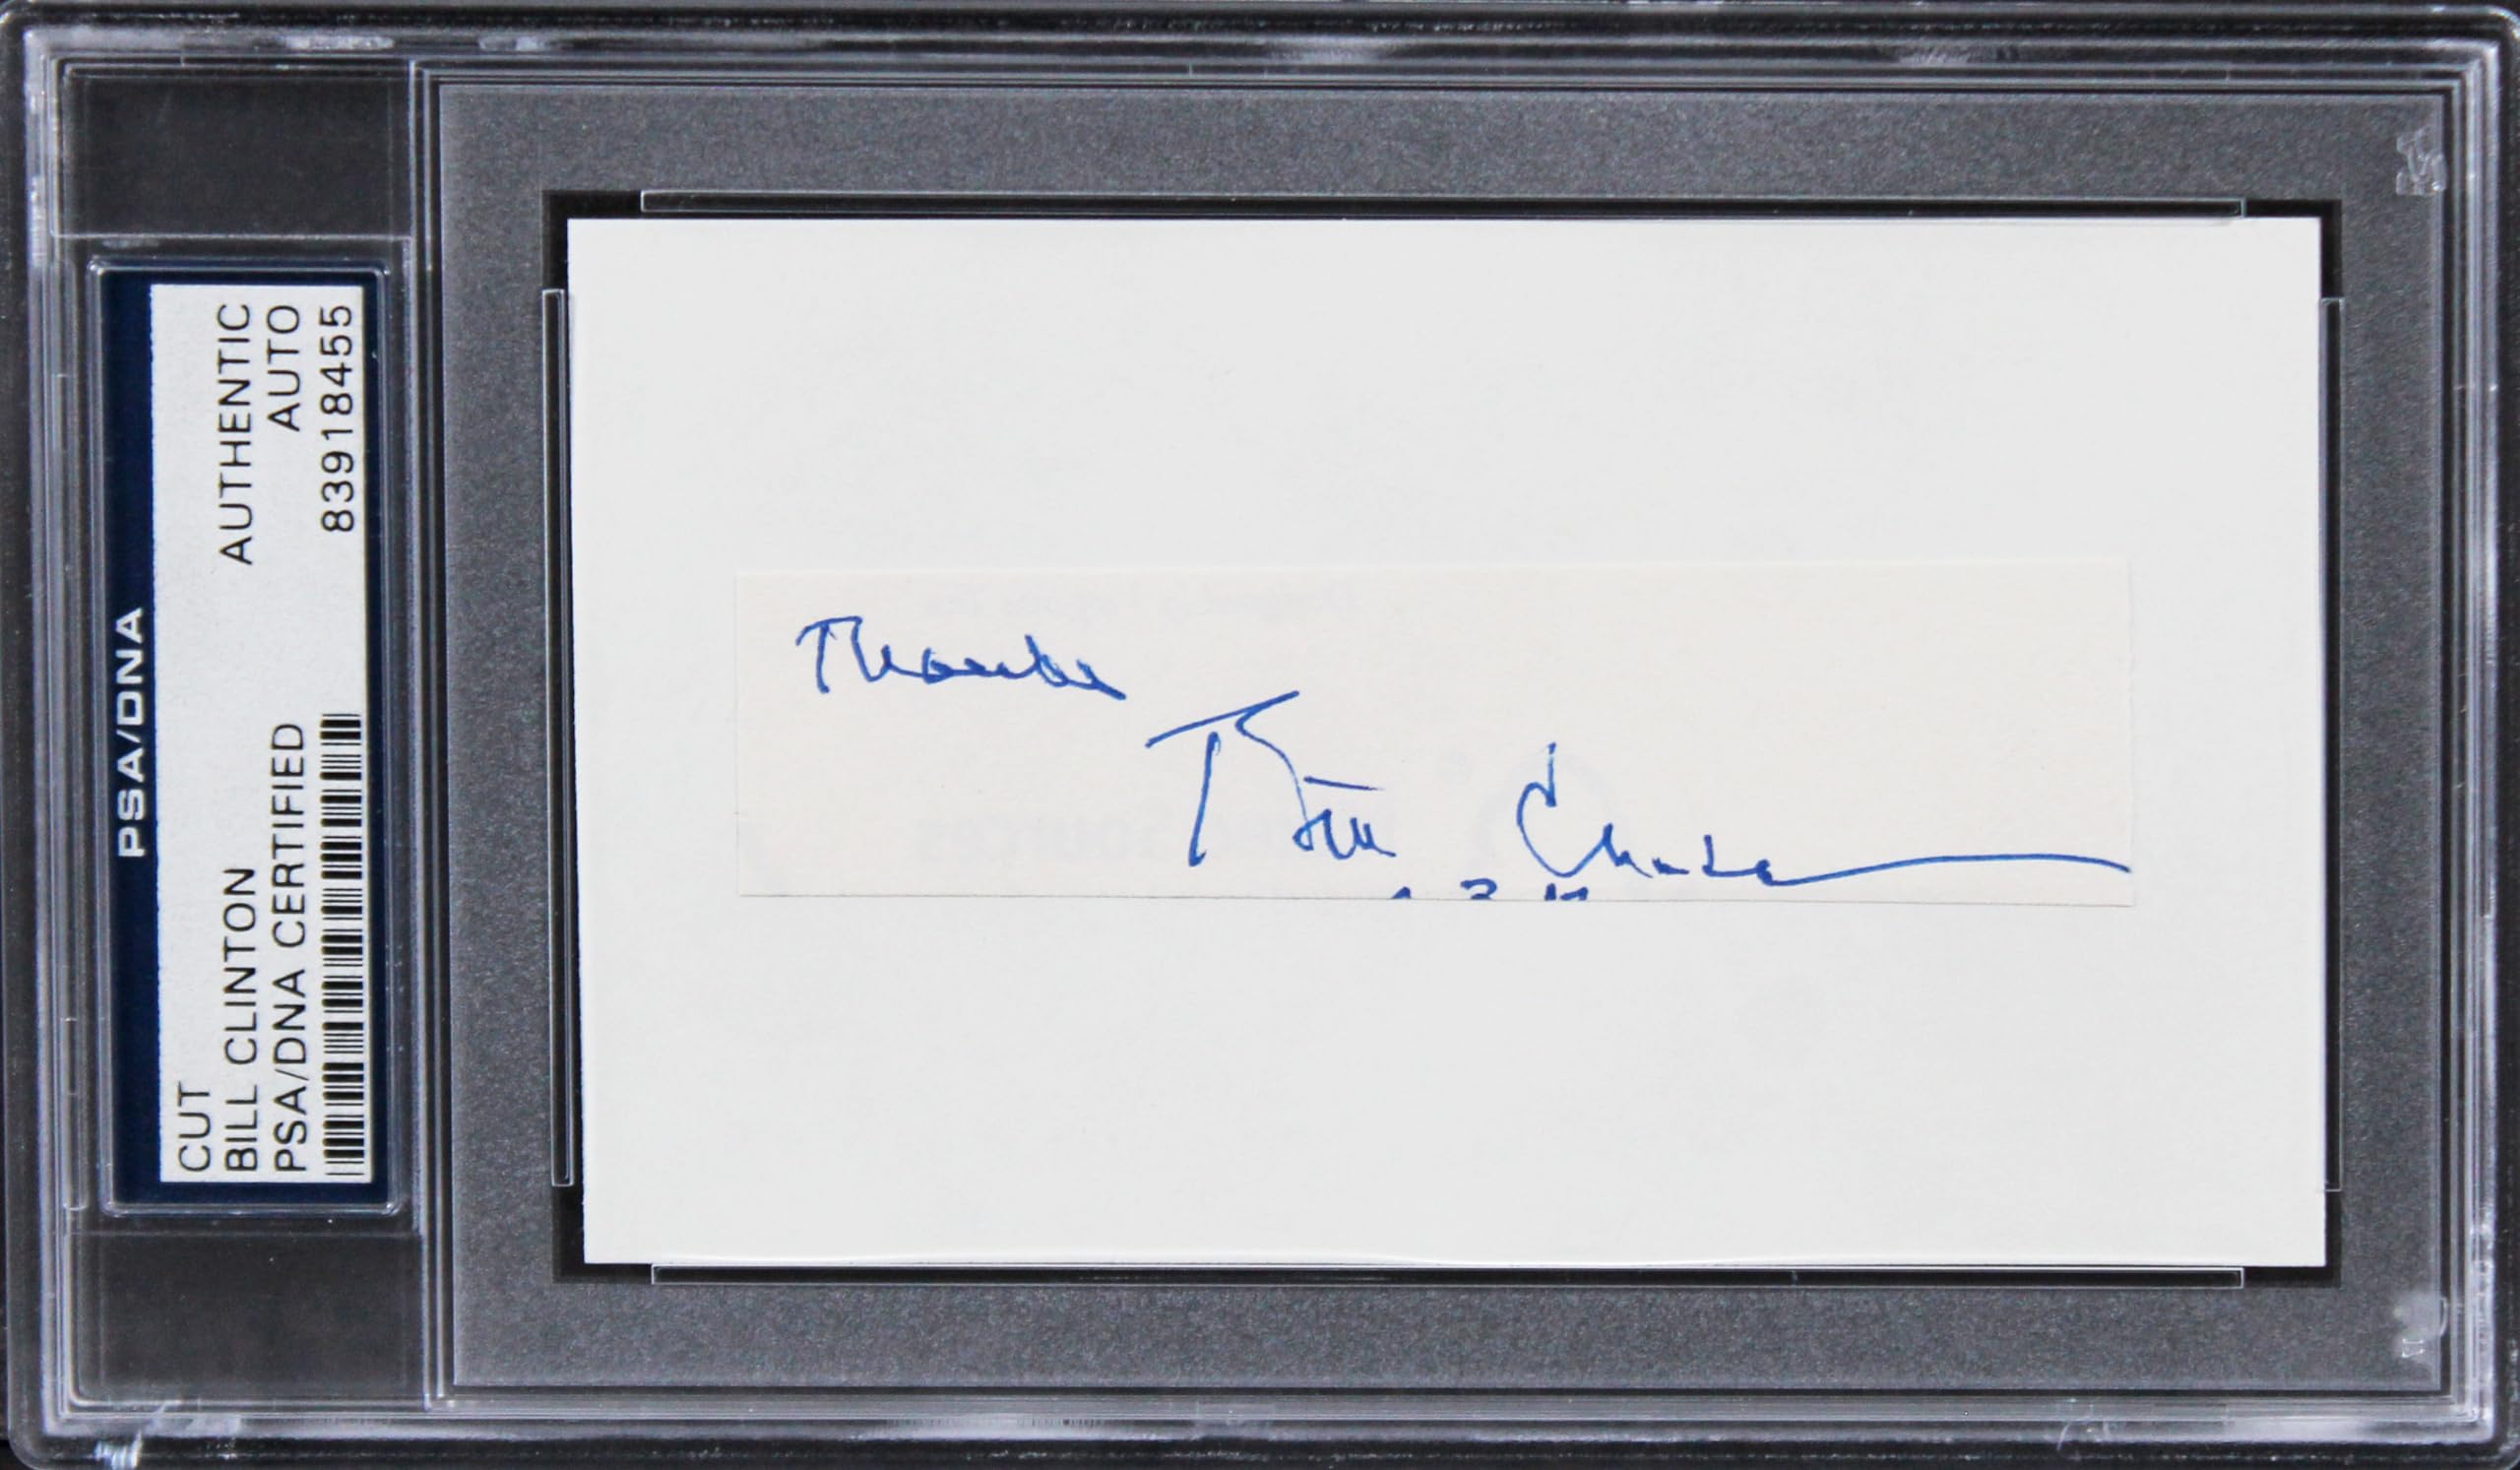 PSA/DNA
CUT AUTHENTIC
BILL CLINTON AUTO
PSA/DNA CERTIFIED 83918455
Thanks
Bill Clinton